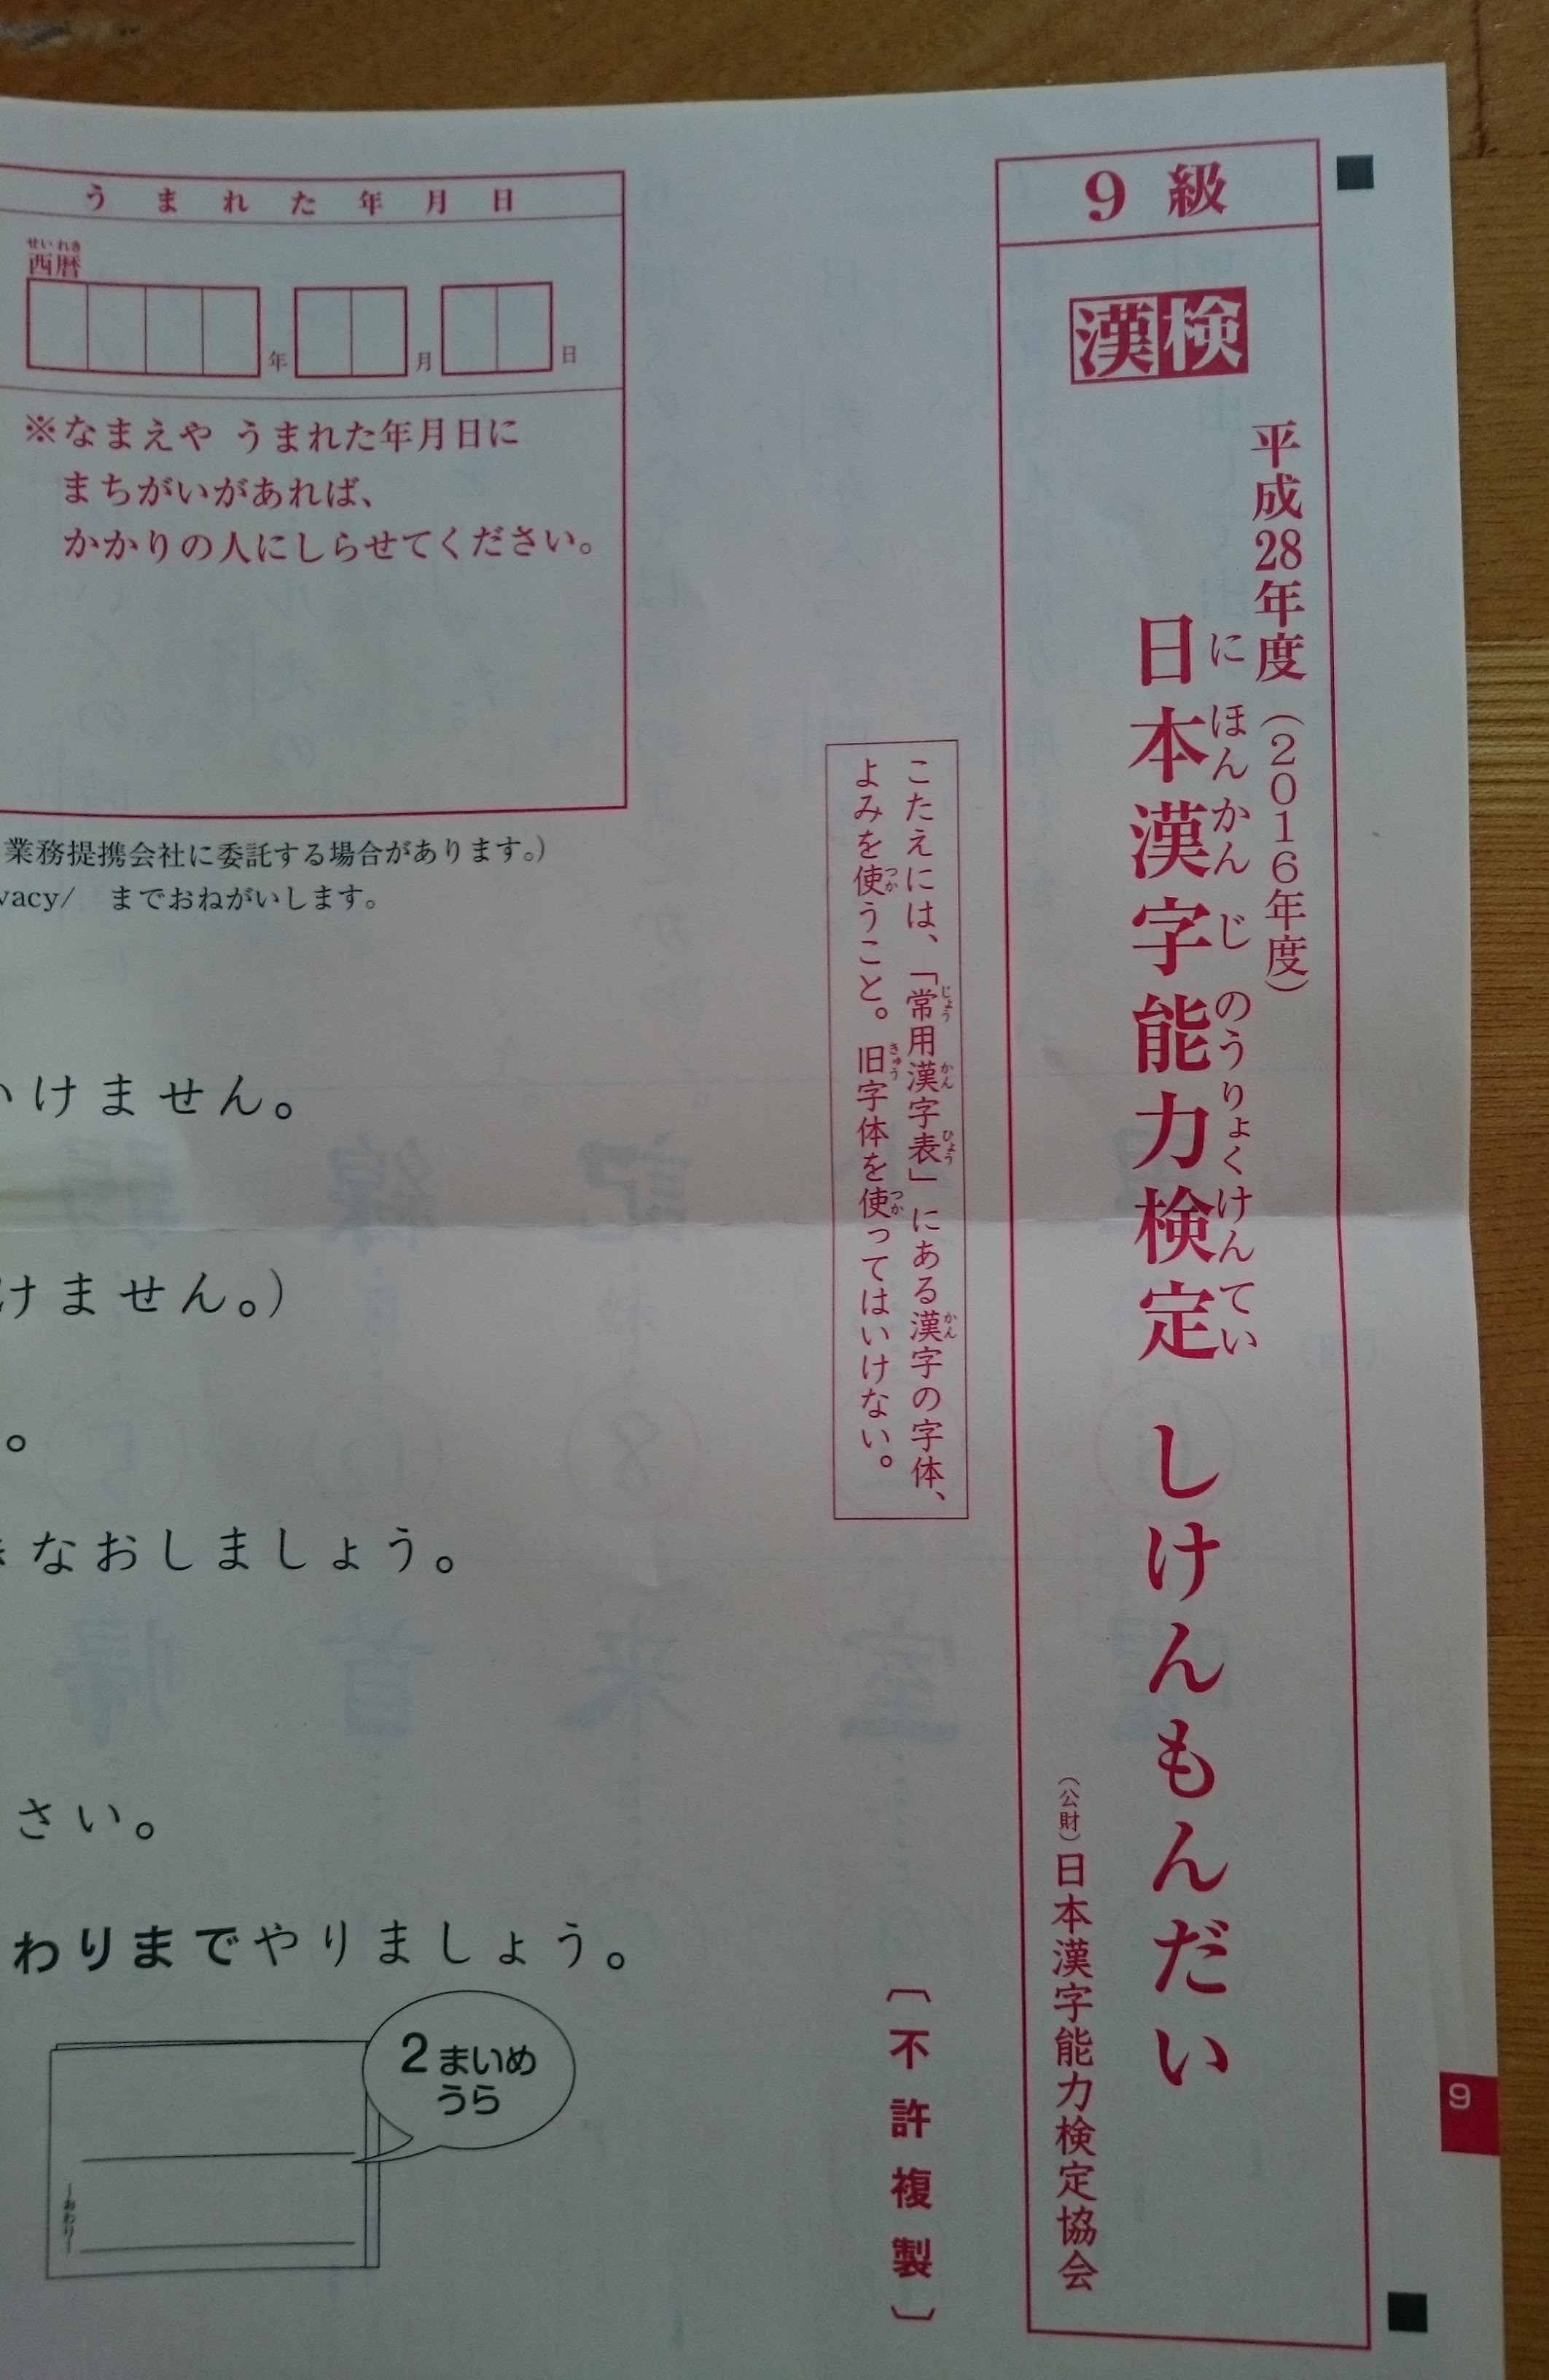 9級
漢検
平成28年度(2016年度)
日本漢字能力検定 しけんもんだい
にほんかんじのうりょくけんてい
(公財)日本漢字能力検定協会
こたえには、「常用漢字表」にある漢字の字体、
じょう かん ひょう かん
よみを使うこと。旧字体を使ってはいけない。
つか きゅう つか
〔不許複製〕
うまれた年月日
せいれき
西暦
年 月 日
※なまえや うまれた年月日に
まちがいがあれば、
かかりの人にしらせてください。
業務提携会社に委託する場合があります。)
vacy/ までおねがいします。
いけません。
けません。)
。
きなおしましょう。
さい。
わりまでやりましょう。
2まいめ
うら
―おわり―
9